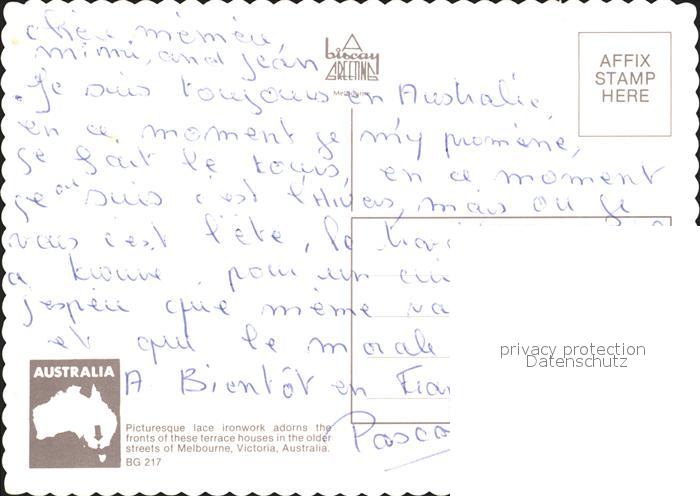 chieu mémèu,
mimi, and jean
A
biscay
GREETING
Melbourne
AFFIX
STAMP
HERE
Je suis toujours en Australie,
en ce moment je m'y promène,
je fait le tours, en ce moment
je où suis c'est l'Hivers, mais ou je
vais c'est l'été, le
a trouve, pour un
j'espeu que mème va
et que le morale
A Bientôt en Fran
Pasca
privacy protection
Datenschutz
AUSTRALIA
Picturesque lace ironwork adorns the
fronts of these terrace houses in the older
streets of Melbourne, Victoria, Australia.
BG 217